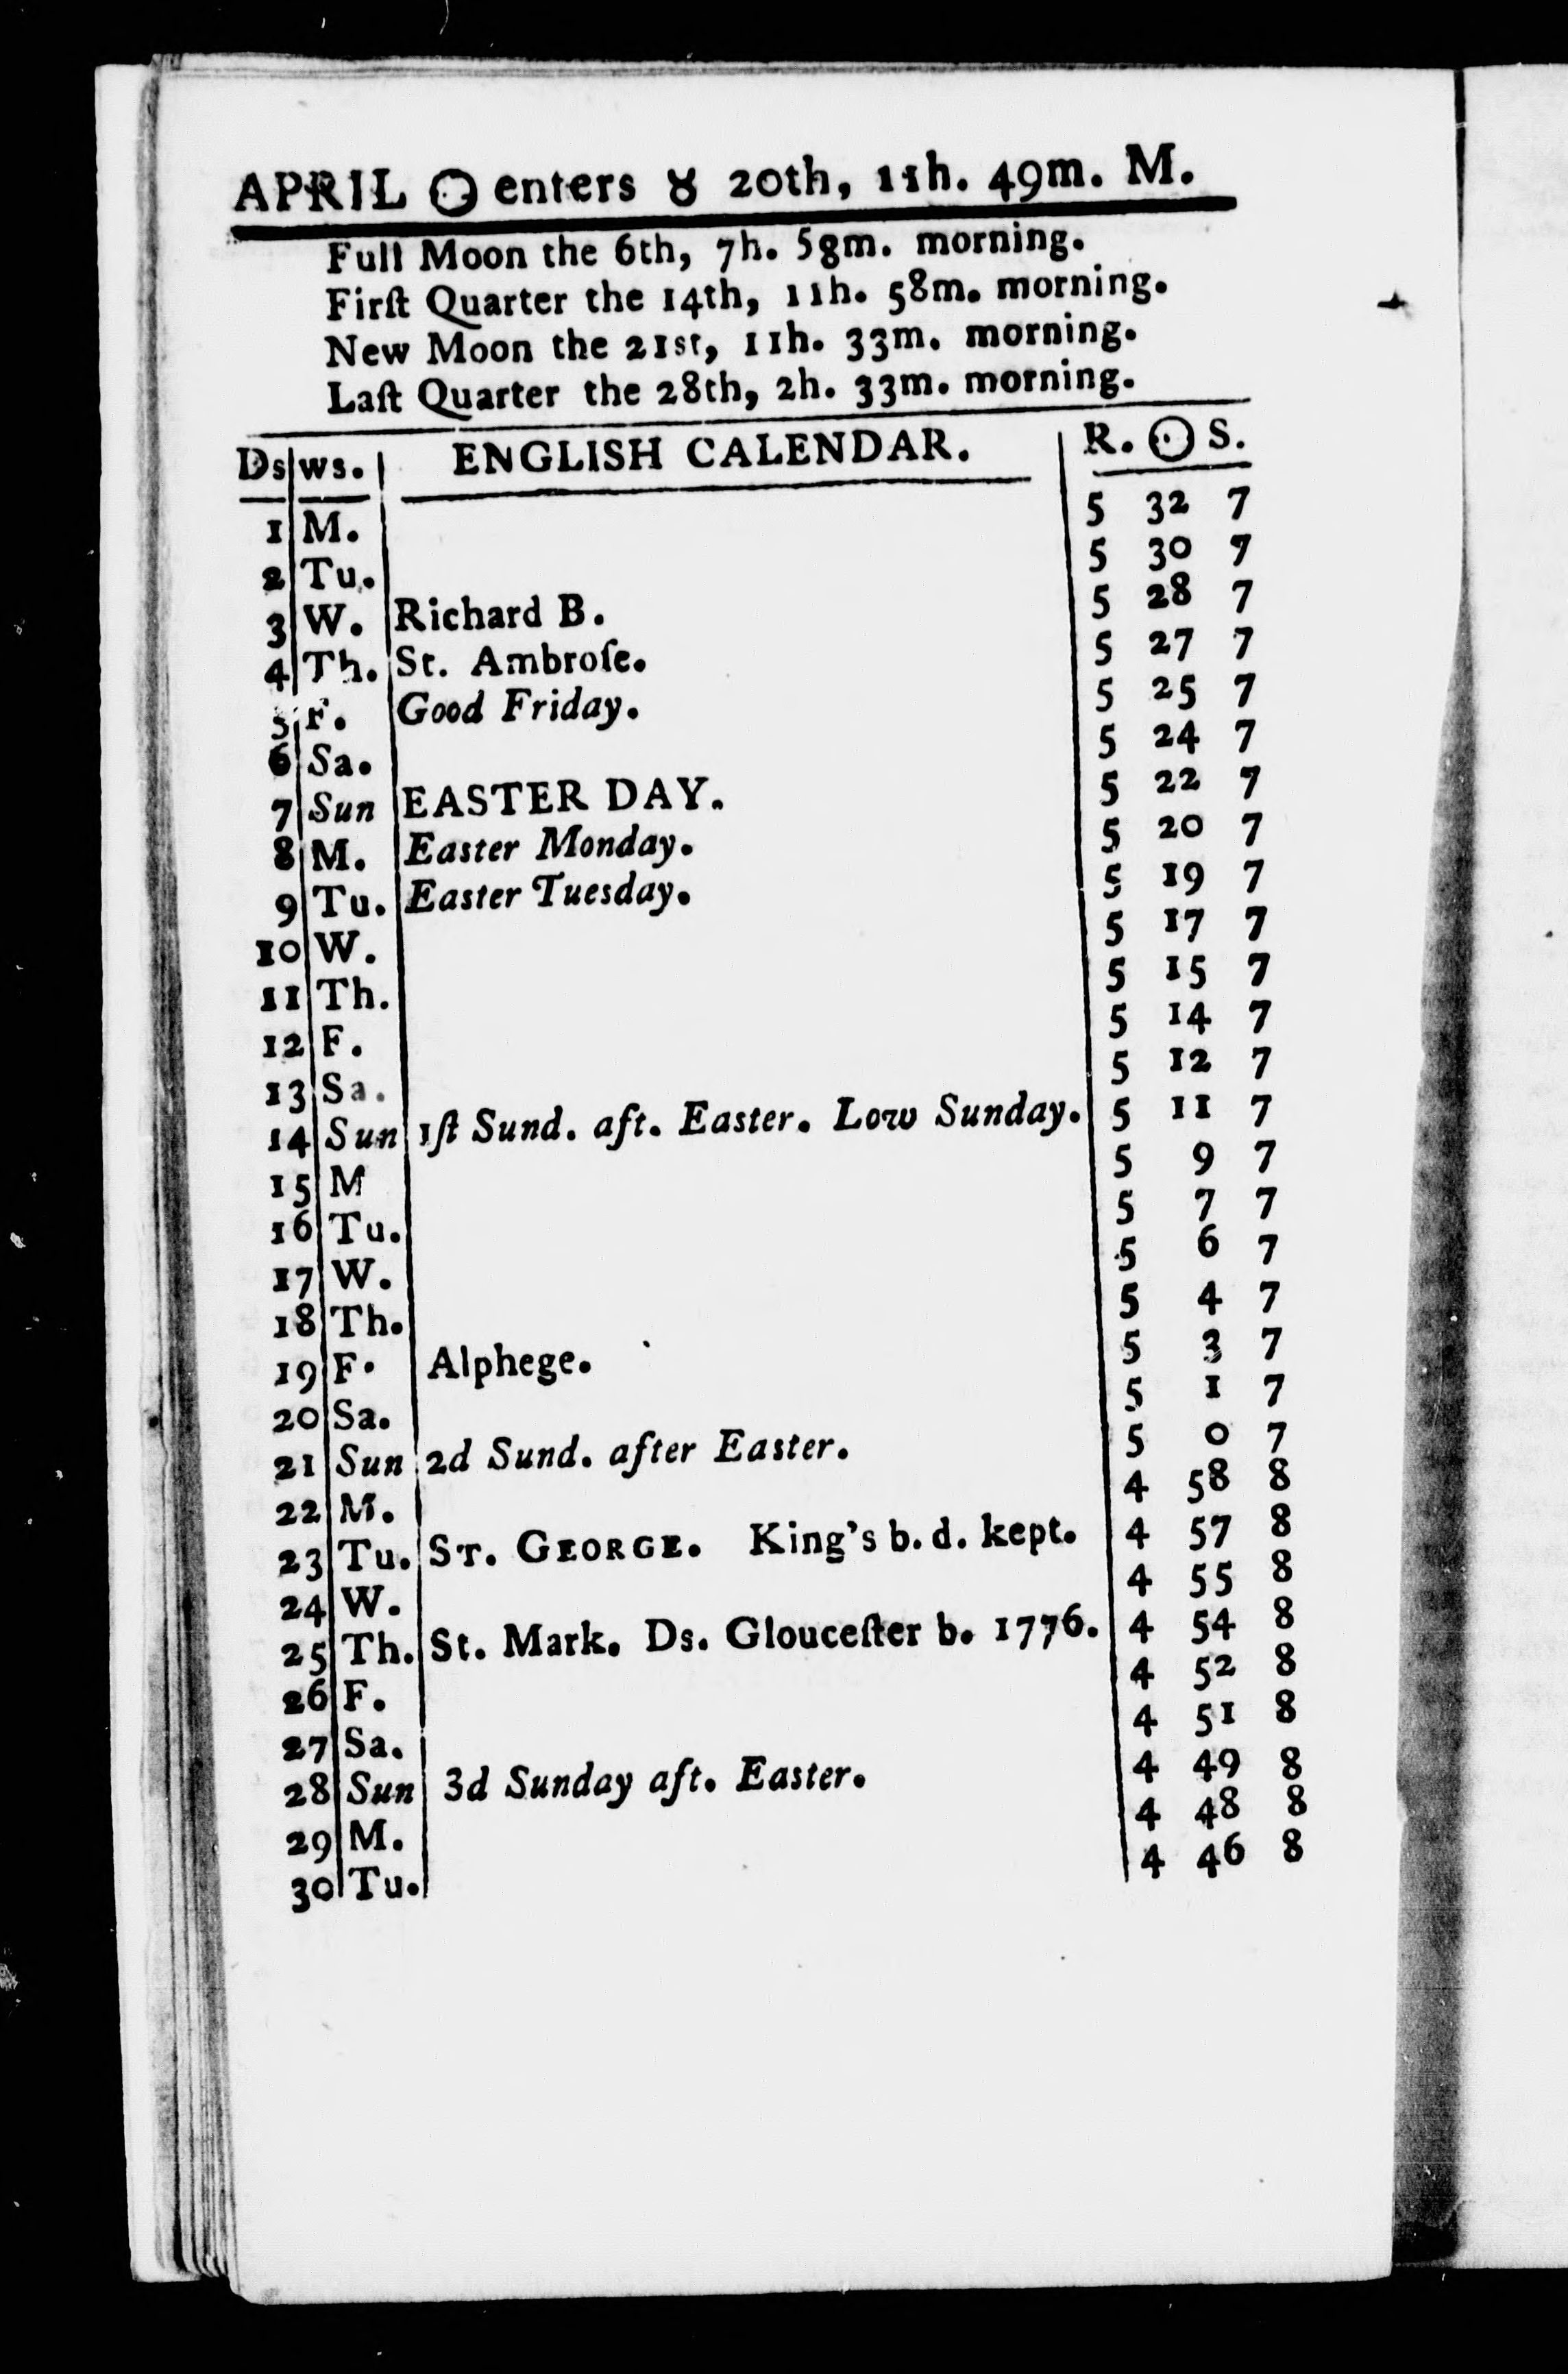 APRIL ☉ enters ♉ 20th, 11h. 49m. M.
Full Moon the 6th, 7h. 58m. morning.
Firſt Quarter the 14th, 11h. 58m. morning.
New Moon the 21st, 11h. 33m. morning.
Laſt Quarter the 28th, 2h. 33m. morning.
Ds ws. ENGLISH CALENDAR. R. ☉ S.
1 M. 5 32 7
2 Tu. 5 30 7
3 W. Richard B. 5 28 7
4 Th. St. Ambroſe. 5 27 7
5 F. Good Friday. 5 25 7
6 Sa. 5 24 7
7 Sun EASTER DAY. 5 22 7
8 M. Easter Monday. 5 20 7
9 Tu. Easter Tuesday. 5 19 7
10 W. 5 17 7
11 Th. 5 15 7
12 F. 5 14 7
13 Sa. 5 12 7
14 Sun 1ſt Sund. aft. Easter. Low Sunday. 5 11 7
15 M 5 9 7
16 Tu. 5 7 7
17 W. 5 6 7
18 Th. 5 4 7
19 F. Alphege. 5 3 7
20 Sa. 5 1 7
21 Sun 2d Sund. after Easter. 5 0 7
22 M. 4 58 8
23 Tu. ST. GEORGE. King's b. d. kept. 4 57 8
24 W. 4 55 8
25 Th. St. Mark. Ds. Glouceſter b. 1776. 4 54 8
26 F. 4 52 8
27 Sa. 4 51 8
28 Sun 3d Sunday aft. Easter. 4 49 8
29 M. 4 48 8
30 Tu. 4 46 8